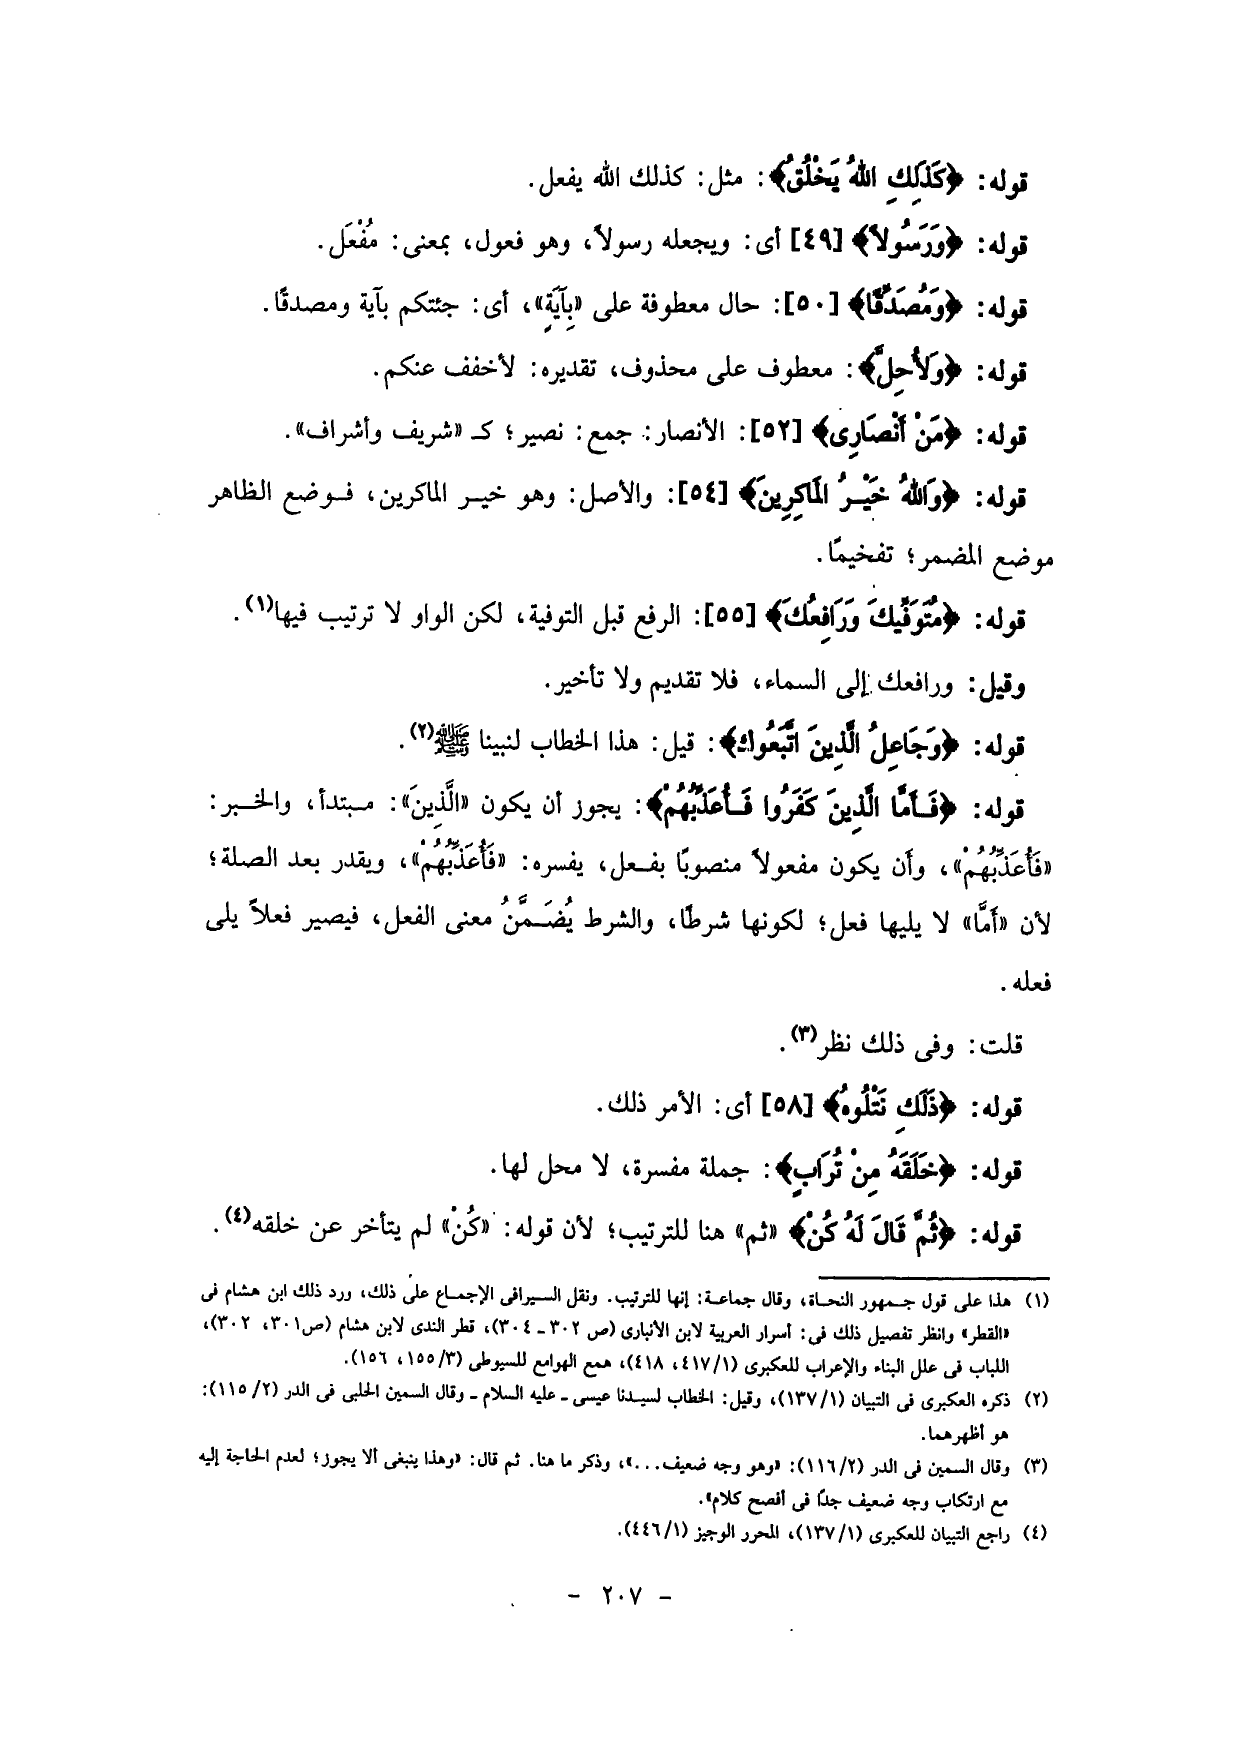 قوله: ﴿كَذَلِكِ اللهُ يَخْلُقُ﴾: مثل: كذلك الله يفعل.
قوله: ﴿وَرَسُولاً﴾ [٤٩] أى: ويجعله رسولاً، وهو فعول، بمعنى: مُفْعَل.
قوله: ﴿وَمُصَدِّقًا﴾ [٥٠]: حال معطوفة على «بِآيَةٍ»، أى: جئتكم بآية ومصدقًا.
قوله: ﴿وَلأُحِلَّ﴾: معطوف على محذوف، تقديره: لأخفف عنكم.
قوله: ﴿مَنْ أَنْصَارِى﴾ [٥٢]: الأنصار: جمع: نصير؛ كـ «شريف وأشراف».
قوله: ﴿وَاللهُ خَيْرُ الْمَاكِرِينَ﴾ [٥٤]: والأصل: وهو خير الماكرين، فوضع الظاهر
موضع المضمر؛ تفخيمًا.
قوله: ﴿مُتَوَفِّيكَ وَرَافِعُكَ﴾ [٥٥]: الرفع قبل التوفية، لكن الواو لا ترتيب فيها(١).
وقيل: ورافعك إلى السماء، فلا تقديم ولا تأخير.
قوله: ﴿وَجَاعِلُ الَّذِينَ اتَّبَعُوك﴾: قيل: هذا الخطاب لنبينا ﷺ(٢).
قوله: ﴿فَأَمَّا الَّذِينَ كَفَرُوا فَأُعَذِّبُهُمْ﴾: يجوز أن يكون «الَّذِينَ»: مبتدأ، والخبر:
«فَأُعَذِّبُهُمْ»، وأن يكون مفعولاً منصوبًا بفعل، يفسره: «فَأُعَذِّبُهُمْ»، ويقدر بعد الصلة؛
لأن «أَمَّا» لا يليها فعل؛ لكونها شرطًا، والشرط يُضَمَّنُ معنى الفعل، فيصير فعلاً يلى
فعله.
قلت: وفى ذلك نظر(٣).
قوله: ﴿ذَلِكَ نَتْلُوهُ﴾ [٥٨] أى: الأمر ذلك.
قوله: ﴿خَلَقَهُ مِنْ تُرَابٍ﴾: جملة مفسرة، لا محل لها.
قوله: ﴿ثُمَّ قَالَ لَهُ كُنْ﴾ «ثم» هنا للترتيب؛ لأن قوله: «كُنْ» لم يتأخر عن خلقه(٤).
(١) هذا على قول جمهور النحاة، وقال جماعة: إنها للترتيب. ونقل السيرافى الإجماع على ذلك، ورد ذلك ابن هشام فى
«القطر» وانظر تفصيل ذلك فى: أسرار العربية لابن الأنبارى (ص ٣٠٢ـ ٣٠٤)، قطر الندى لابن هشام (ص٣٠١، ٣٠٢)،
اللباب فى علل البناء والإعراب للعكبرى (٤١٧/١، ٤١٨)، همع الهوامع للسيوطى (١٥٥/٣، ١٥٦).
(٢) ذكره العكبرى فى التبيان (١٣٧/١)، وقيل: الخطاب لسيدنا عيسى ـ عليه السلام ـ وقال السمين الحلبى فى الدر (١١٥/٢):
هو أظهرهما.
(٣) وقال السمين فى الدر (١١٦/٢): «وهو وجه ضعيف...»، وذكر ما هنا. ثم قال: «وهذا ينبغى ألا يجوز؛ لعدم الحاجة إليه
مع ارتكاب وجه ضعيف جدًا فى أفصح كلام».
(٤) راجع التبيان للعكبرى (١٣٧/١)، المحرر الوجيز (٤٤٦/١).
- ٢٠٧ -